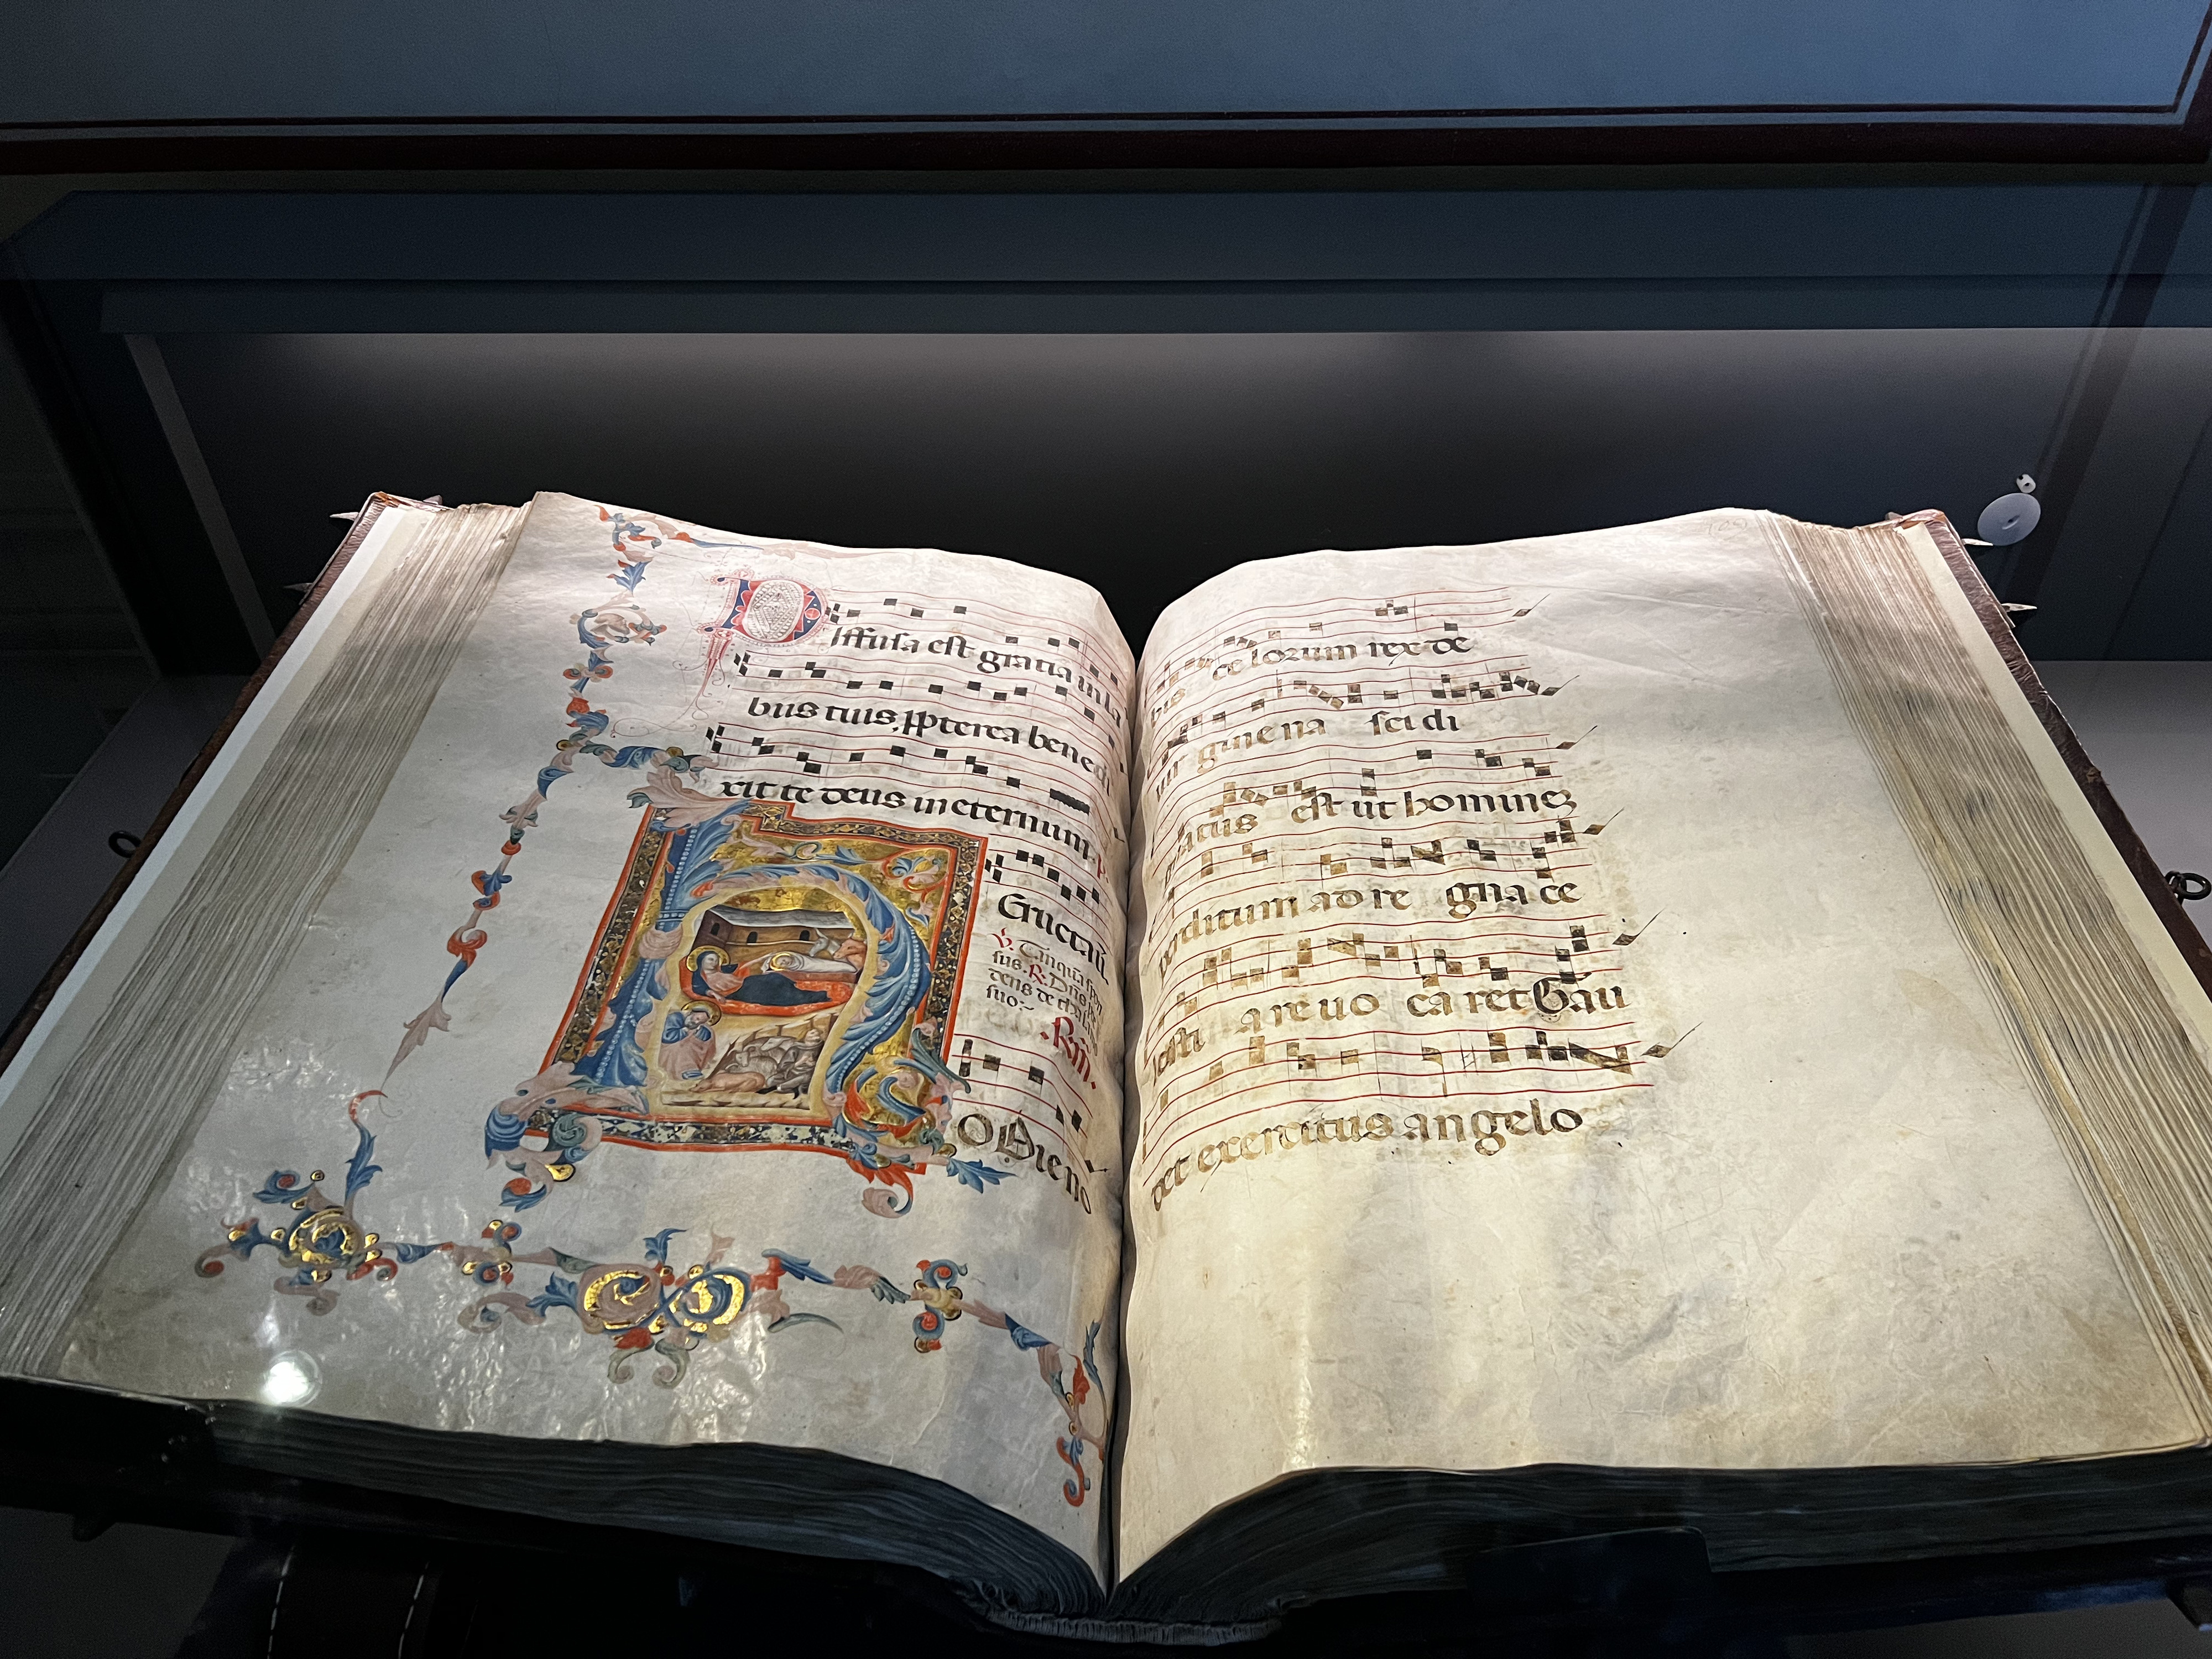 Diffusa est gratia in la
bus tuis, ppterea benedi
xit te deus in eternum.
Eructau
V. Tanquã spon
sus. R. Dñs
dens de thala
suo.
.Rm.
HOdie no
bis ce lorum rex de
uir gine na sci di
gnatus est ut homines
perditum ad re gna ce
lesti a re uo ca ret Gau
det exercitus angelo